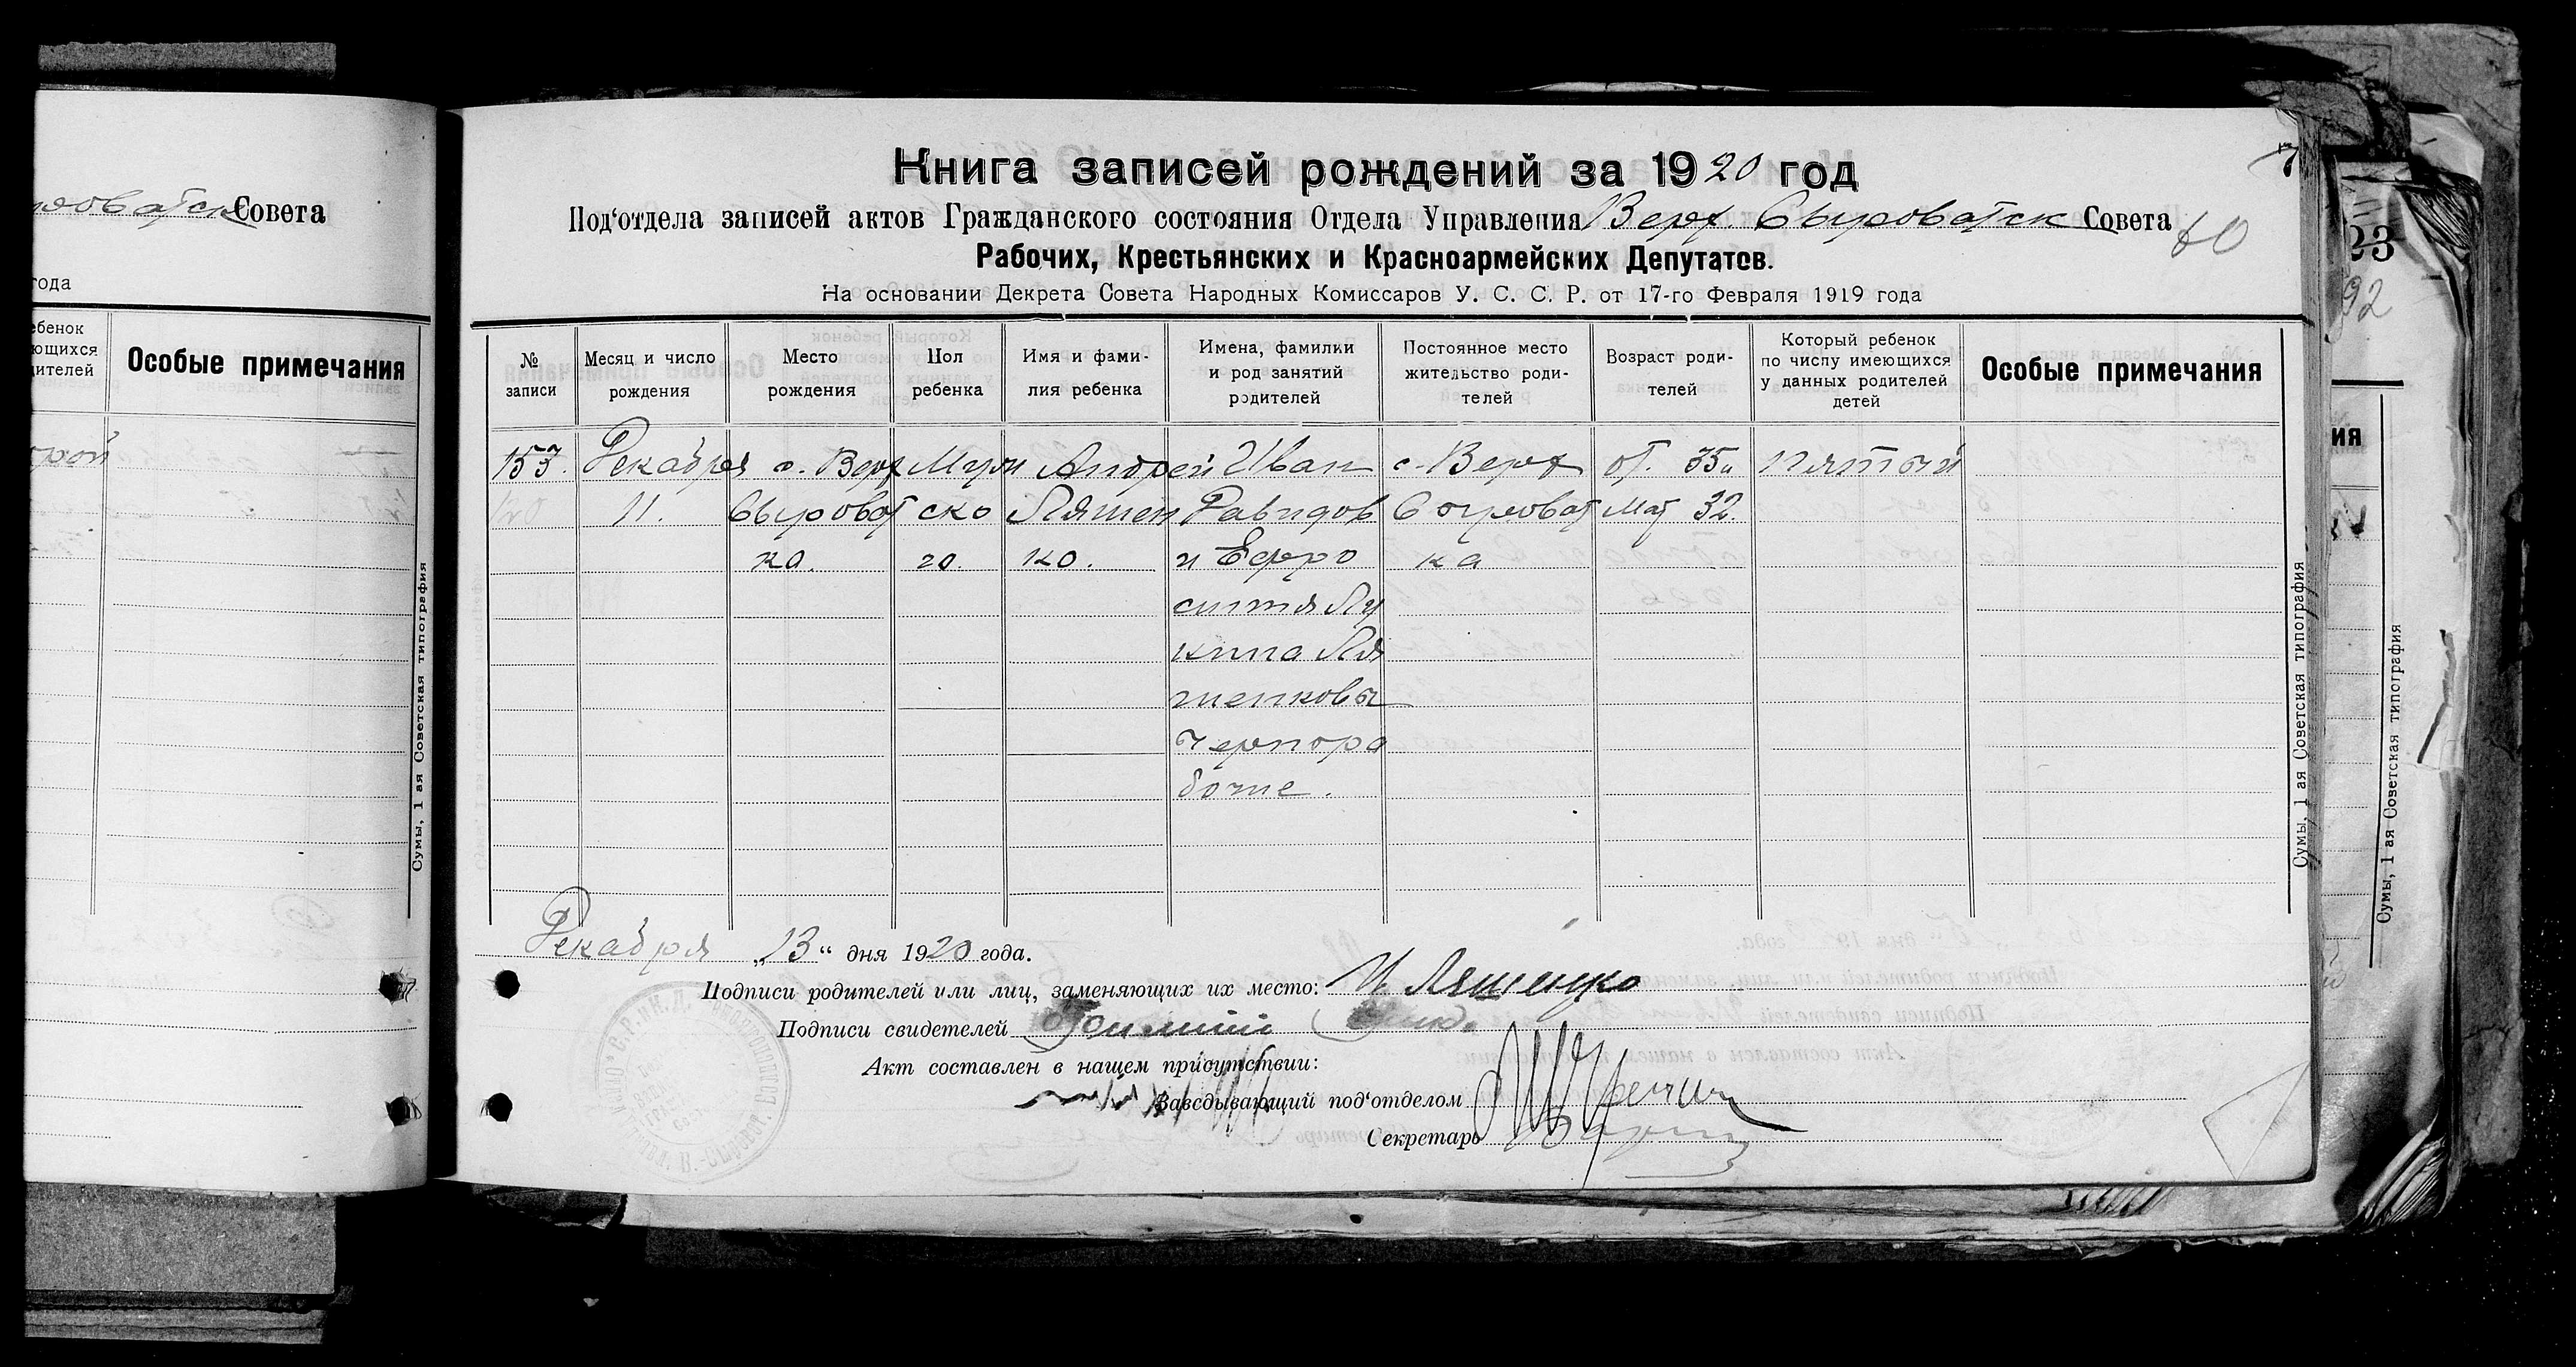 Совета
года
ебенок
ющихся
дителей
Особые примечания
Сумы, 1 ая Советская типография
Книга записей рождений за 1920 год
Под'отдела записей актов Гражданского состояния Отдела Управления Верх. Сыроватск Совета
60
Рабочих, Крестьянских и Красноармейских Депутатов.
На основании Декрета Совета Народных Комиссаров У. С. С. Р. от 17-го Февраля 1919 года
№ записи
Месяц и число рождения
Место рождения
Пол ребенка
Имя и фами-
лия ребенка
Имена, фамилии
и род занятий
родителей
Постоянное место
жительство роди-
телей
Возраст роди-
телей
Который ребенок
по числу имеющихся
у данных родителей
детей
Особые примечания
153. Декабря с. Верх Муж Андрей Иван с. Верх от. 35 пятый
11. Сыроват ско Ляшен Давидов Сыроват Мат 32.
ка. го. ко. и Ефро ка
синия Лу
кина Ля
шенковы
чернора
бочие.
Сумы, 1 ая Советская типография
Декабря „13“ дня 1920 года.
Подписи родителей или лиц, заменяющих их место: И Ляшенко
Подписи свидетелей
Акт составлен в нащем присутствии:
Заведывающий под'отделом
Секретарь
23
92
ия
Сумы, 1 ая Советская типография